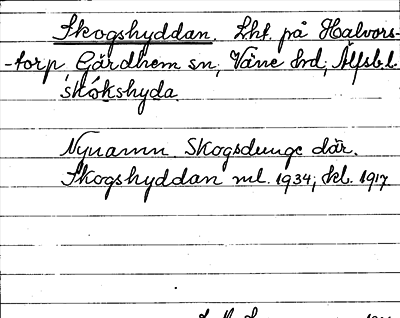 Skogshyddan. Lht. på Halvors-
-torp Gärdhem sn, Väne hd, Älfsb.l.
skókshyda.
Nynamn. Skogsdunge där.
Skogshyddan ml. 1934; kl. 1917